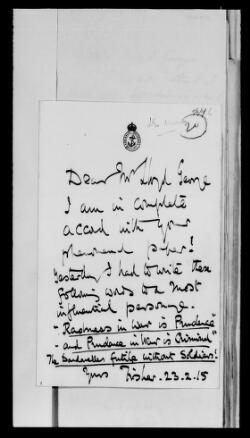 20
Dear Mr Lloyd George
I am in complete
accord with your
phenomenal paper!
Yesterday I had to write these
following words to a most
influential personage.
"Rashness in War is Prudence"
"and Prudence in War is Criminal"
The Dardanelles futile without Soldiers!
Yours Fisher. 23.2.15